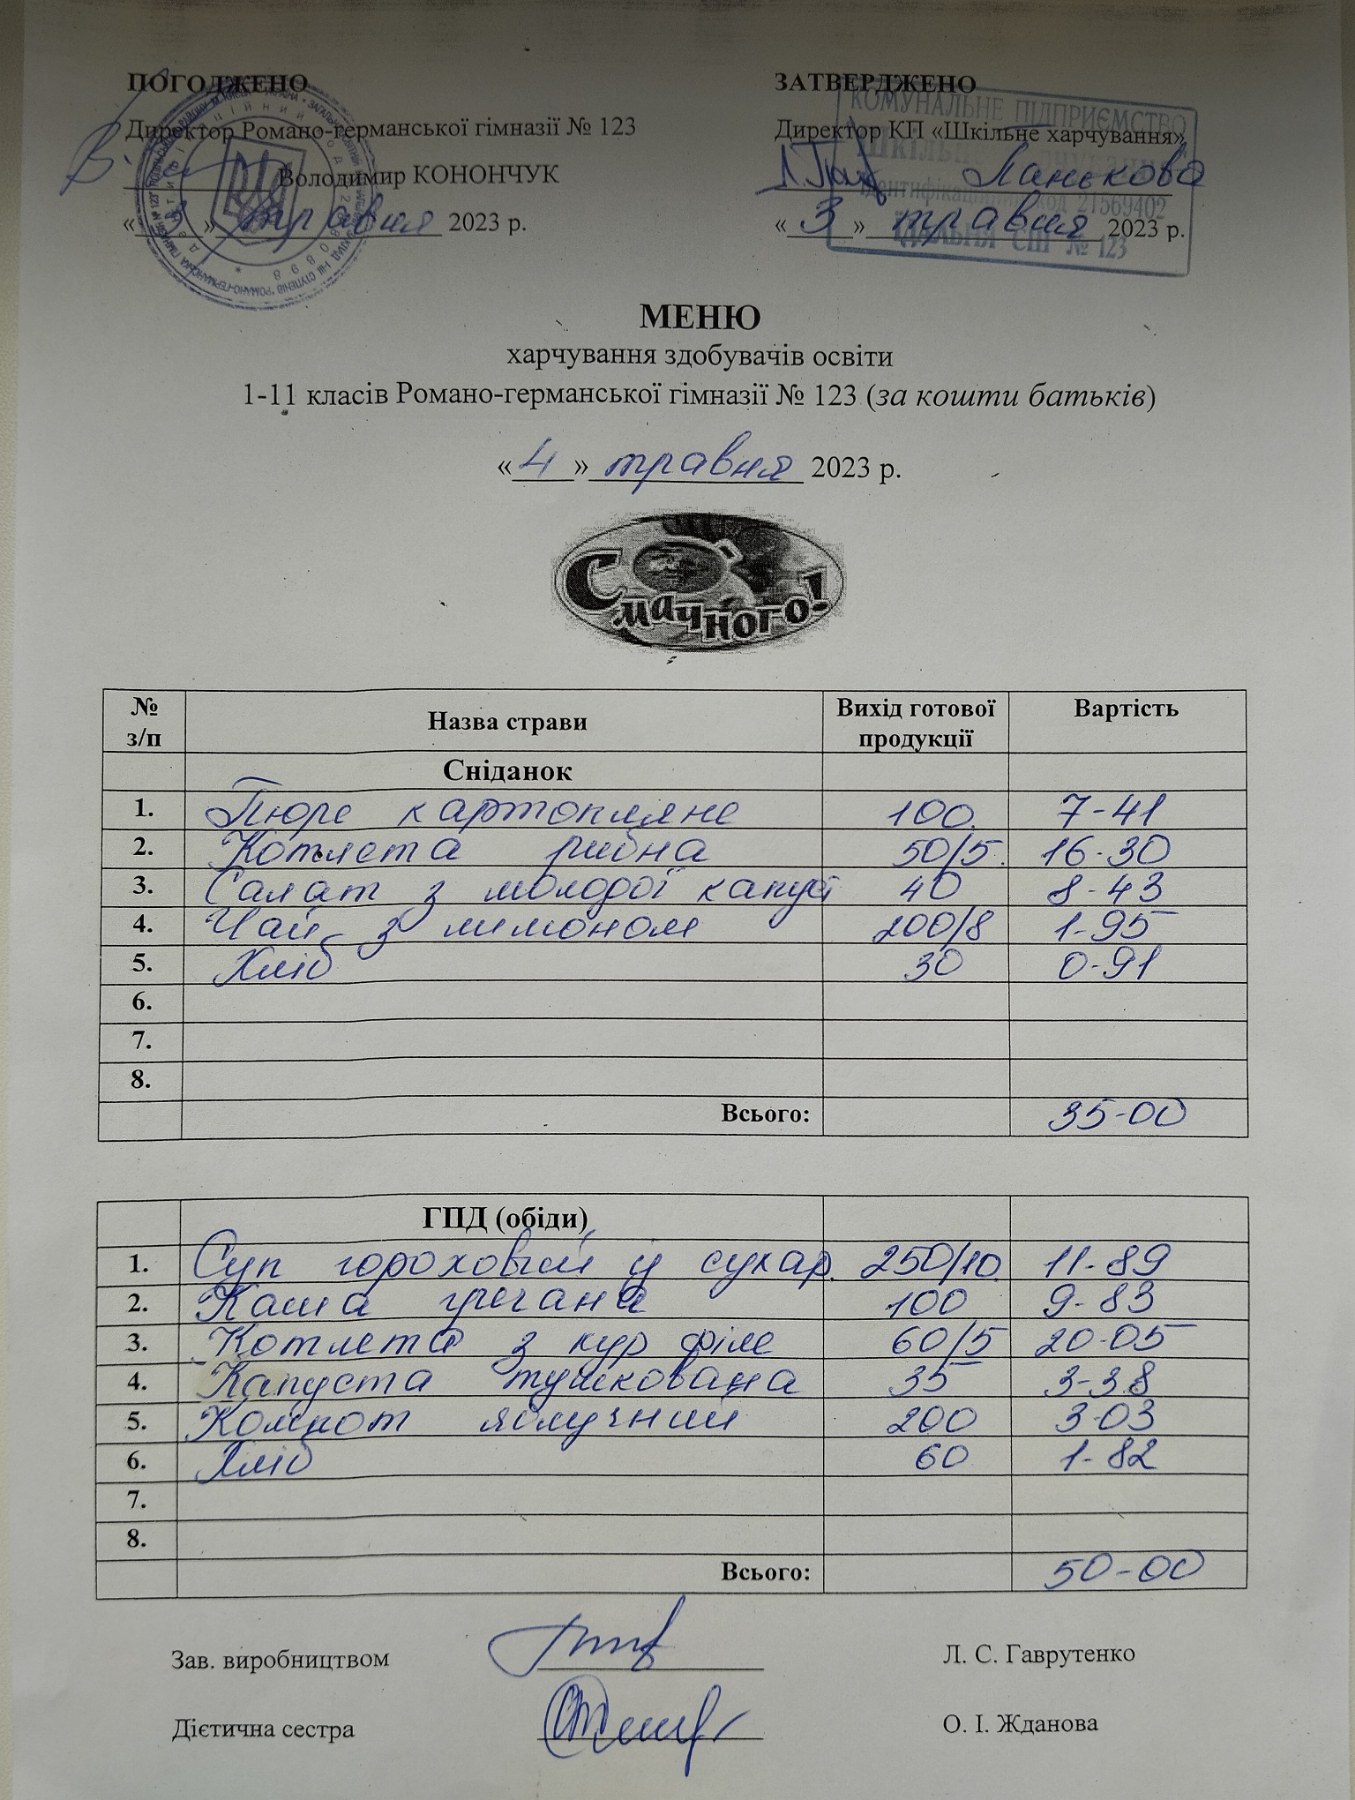 ПОГОДЖЕНО
Директор Романо-германської гімназії № 123
Володимир КОНОНЧУК
«3» травня 2023 р.
ЗАТВЕРДЖЕНО
Директор КП «Шкільне харчування»
Ланькова
«3» травня 2023 р.
КОМУНАЛЬНЕ ПІДПРИЄМСТВО
Ідентифікаційний код 21569402
ЇДАЛЬНЯ СШ № 123
МЕНЮ
харчування здобувачів освіти
1-11 класів Романо-германської гімназії № 123 (за кошти батьків)
«4» травня 2023 р.
Смачного!
№ з/п Назва страви Вихід готової продукції Вартість
Сніданок
1. Пюре картопляне 100 7-41
2. Котлета рибна 50/5 16-30
3. Салат з молодої капуст 40 8-43
4. Чай з лимоном 200/8 1-95
5. Хліб 30 0-91
6.
7.
8.
Всього: 35-00
ГПД (обіди)
1. Суп гороховый у сухар. 250/10 11-89
2. Каша гречана 100 9-83
3. Котлета з кур філе 60/5 20-05
4. Капуста тушкована 35 3-38
5. Компот яблучний 200 3-03
6. Хліб 60 1-82
7.
8.
Всього: 50-00
Зав. виробництвом Л. С. Гаврутенко
Дієтична сестра О. І. Жданова